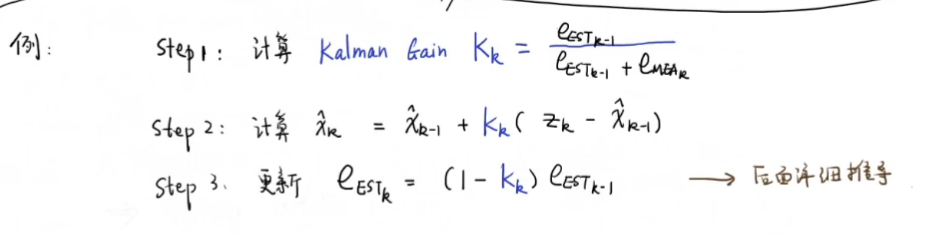 例: Step 1: 计算 Kalman Gain K_k = e_{EST_{k-1}} / (e_{EST_{k-1}} + e_{MEA_k})
Step 2: 计算 x̂_k = x̂_{k-1} + K_k ( z_k - x̂_{k-1})
Step 3. 更新 e_{EST_k} = (1 - K_k) e_{EST_{k-1}} → 后面详细推导